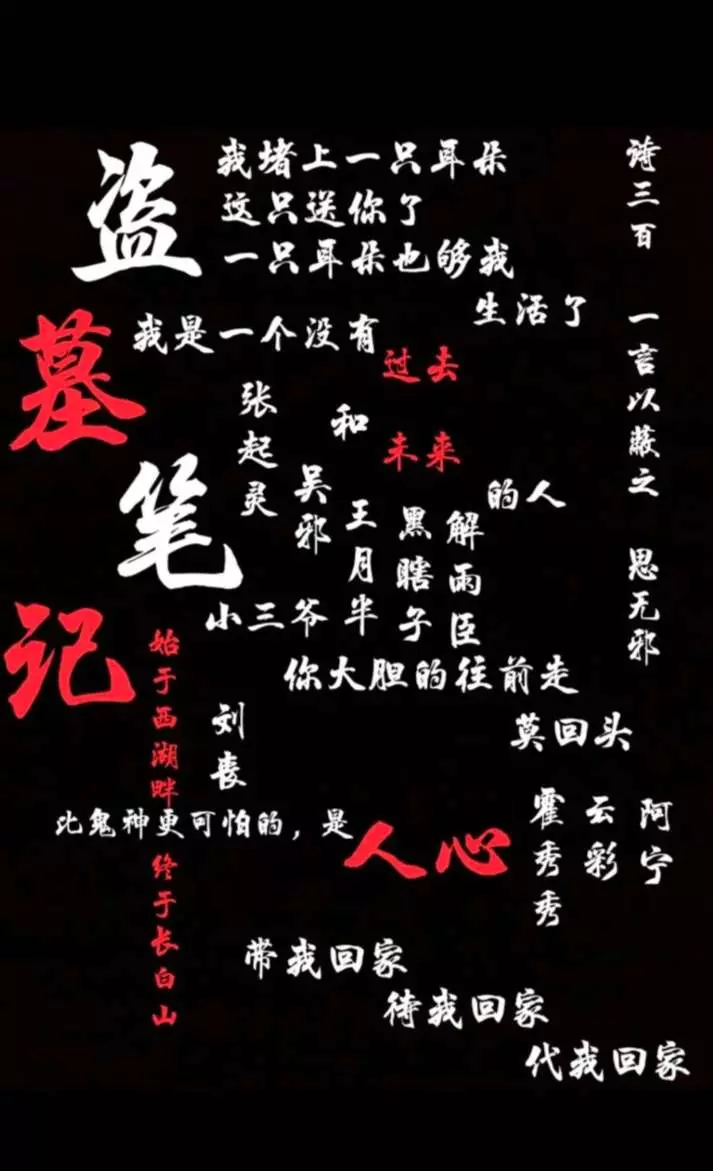 盗墓笔记
我堵上一只耳朵
这只送你了
一只耳朵也够我
生活了
诗三百 一言以蔽之 思无邪
我是一个没有
过去
和
未来
的人
张起灵
吴邪
王月半
黑瞎子
解雨臣
小三爷
你大胆的往前走
莫回头
始于西湖畔
终于长白山
刘丧
比鬼神更可怕的，是
人心
霍秀秀
云彩
阿宁
带我回家
待我回家
代我回家